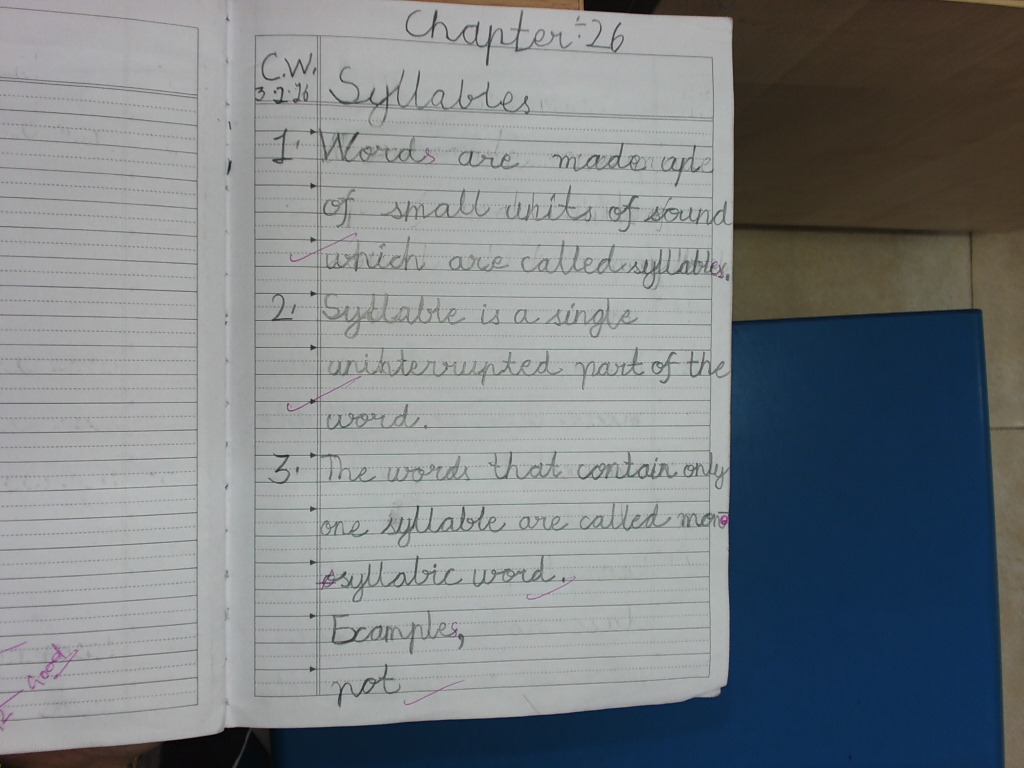 Chapter÷26
C.W.
3.2.26
Syllables
1. Words are made up
of small units of sound
which are called syllables.
2. Syllable is a single
uninterrupted part of the
word.
3. The words that contain only
one syllable are called mono
syllabic word.
Examples,
not
Good